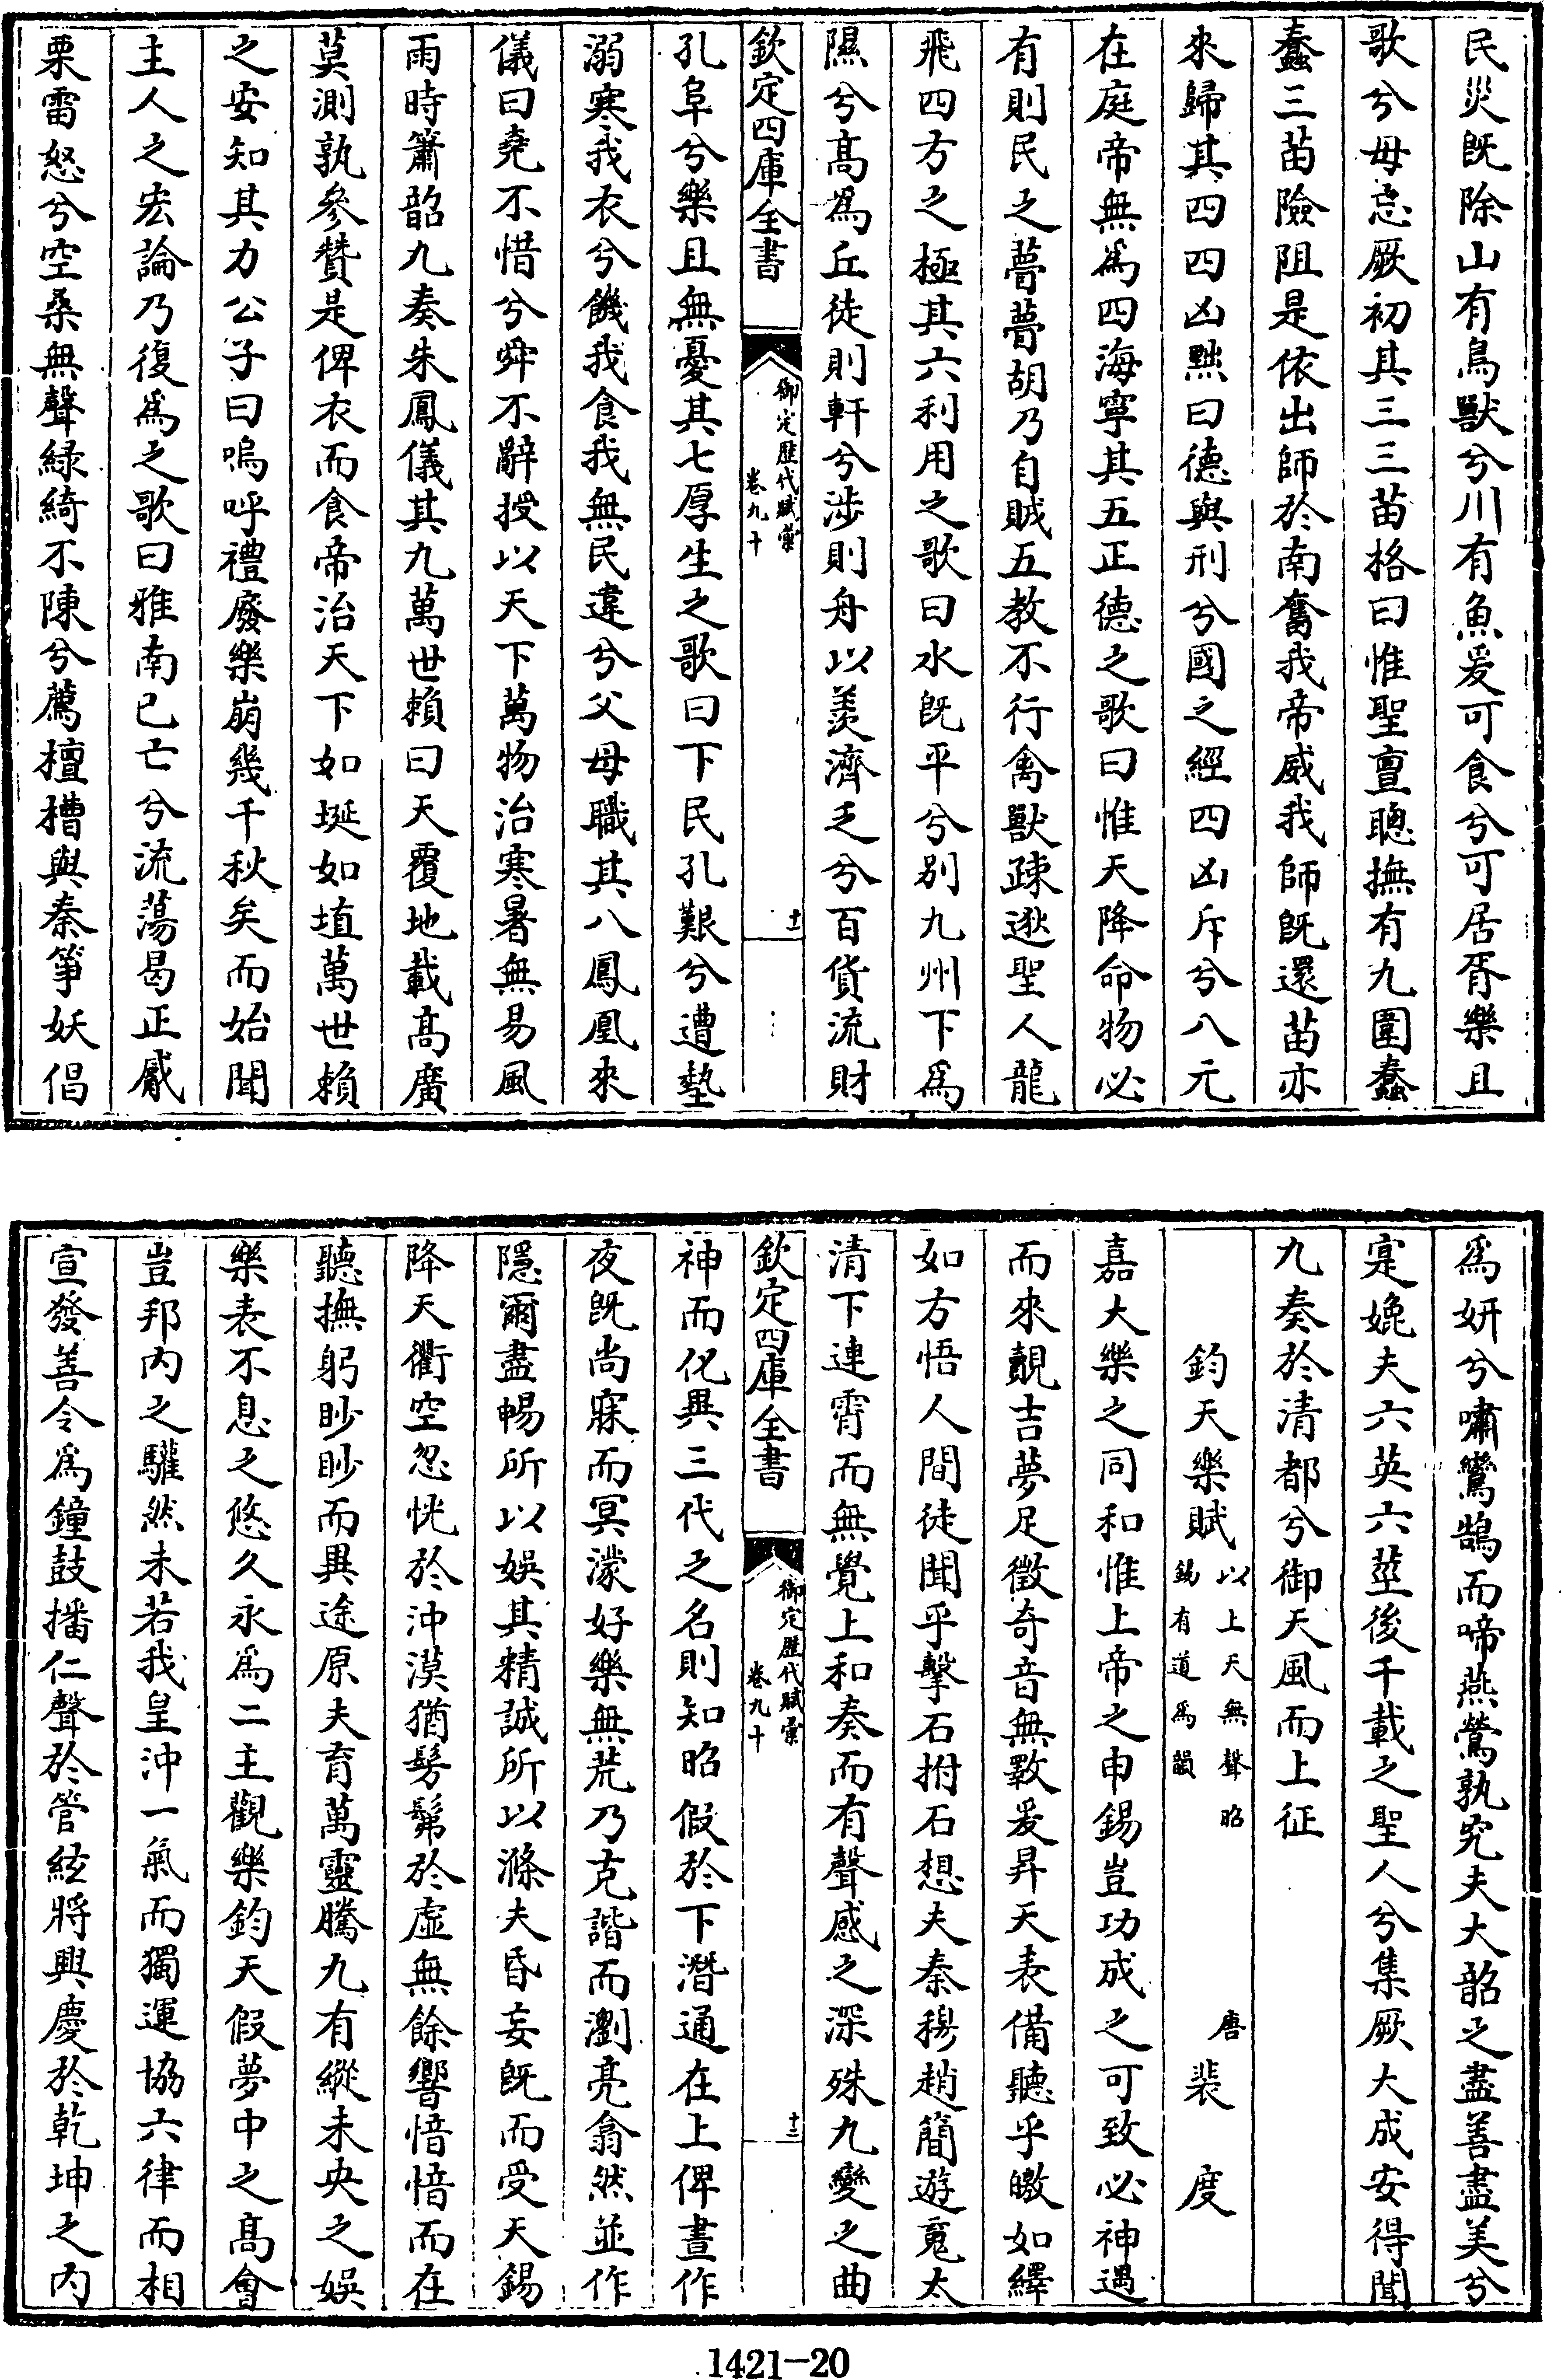 民災既除山有鳥獸兮川有魚爰可食兮可居胥樂且
歌兮毋忘厥初其三三苗格曰惟聖亶聰撫有九圍蠢
蠢三苗險阻是依出師於南奮我帝威我師既還苗亦
來歸其四四凶黜曰德與刑兮國之經四凶斥兮八元
在庭帝無為四海寧其五正德之歌曰惟天降命物必
有則民之瞢瞢胡乃自賊五教不行禽獸疎逖聖人龍
飛四方之極其六利用之歌曰水既平兮别九州下為
隰兮髙為丘徒則軒兮涉則舟以羨濟乏兮百貨流財
欽定四庫全書
御定歷代賦彙
卷九十
十一
孔阜兮樂且無憂其七厚生之歌曰下民孔艱兮遭墊
溺寒我衣兮饑我食我無民違兮父母職其八鳳凰來
儀曰堯不惜兮舜不辭授以天下萬物治寒暑無易風
雨時簫韶九奏朱鳳儀其九萬世賴曰天覆地載髙廣
莫測孰參贊是俾衣而食帝治天下如埏如埴萬世賴
之安知其力公子曰嗚呼禮廢樂崩幾千秋矣而始聞
主人之宏論乃復為之歌曰雅南已亡兮流蕩曷正感
栗雷怒兮空桑無聲綠綺不陳兮薦檀槽與秦箏妖倡
為妍兮嘯鸞鵠而啼燕鶯孰究夫大韶之盡善盡美兮
寔娩夫六英六莖後千載之聖人兮集厥大成安得聞
九奏於清都兮御天風而上征
鈞天樂賦 以上天無聲昭
錫有道為韻
唐 裴度
嘉大樂之同和惟上帝之申錫豈功成之可致必神遇
而來覿吉夢足徵奇音無斁爰昇天表備聽乎皦如繹
如方悟人間徒聞乎擊石拊石想夫秦穆趙簡遊寬太
清下連霄而無覺上和奏而有聲感之深殊九變之曲
欽定四庫全書
御定歷代賦彙
卷九十
十二
神而化異三代之名則知昭假於下潛通在上俾晝作
夜既尚寐而冥濛好樂無荒乃克諧而瀏亮翕然並作
隱爾盡暢所以娛其精誠所以滌夫昏妄既而受天錫
降天衢空忽恍於沖漠猶髣髴於虛無餘響愔愔而在
聽撫躬眇眇而異途原夫育萬靈騰九有縱未央之娛
樂表不息之悠久永為二主觀樂鈞天假夢中之髙會
豈邦内之驩然未若我皇沖一氣而獨運協六律而相
宣發善令為鐘鼓播仁聲於管絃將興慶於乾坤之内
1421-20